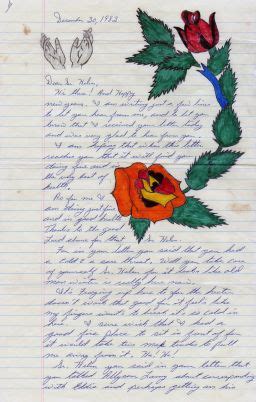 December 30, 1983
Dear Sr. Helen,
Hi there! And Happy
new years. I am writing just a few lines
to let you hear from me, and to let you
know that I received your letter today
and was very glad to hear from you.
I am hoping that when this letter
reaches you that it will find you
doing fine and in
the very best of
health.
As for me I
am doing just fine
and in good health
Thanks to the good
Lord above for that Sr. Helen.
I'm in your letter you said that you had
a cold & a sore throat. Well you take care
of yourself Sr. Helen for it looks like old
man winter is really here again.
It's freezing in here at for the heater
doesn't work that good for it feels like
my fingers want to break it's so cold in
here. I sure wish that I had a
good fire place to sit in front of for
it would take two mack trucks to pull
me away from it. Ha! Ha!
Sr. Helen you said in your letter that
you talked to about corresponding
with Eddie and perhaps getting on his